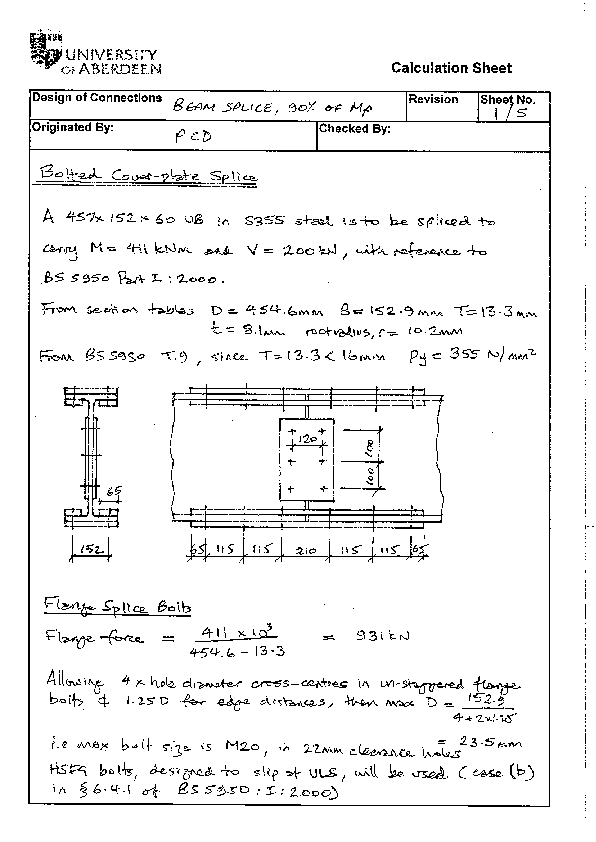 UNIVERSITY
OF ABERDEEN
Calculation Sheet
Design of Connections BEAM SPLICE, 90% OF Mp Revision Sheet No. 1/5
Originated By: PCD Checked By:
Bolted Cover-plate Splice
A 457x152x60 UB in S355 steel is to be spliced to
carry M = 411 kNm and V = 200kN, with reference to
BS 5950 Part I : 2000.
From section tables D = 454.6mm B = 152.9mm T = 13.3mm
t = 8.1mm root radius, r = 10.2mm
From BS 5950 T.9, since T = 13.3 < 16mm py = 355 N/mm²
120
100
100
65
152
65 115 115 210 115 115 65
Flange Splice Bolts
Flange force = 411 x 10³ / 454.6 - 13.3 = 931 kN
Allowing 4 x hole diameter cross-centres in un-staggered flange
bolts & 1.25D for edge distances, then max D = 152.9 / 4+2x1.25
= 23.5mm
i.e max bolt size is M20, in 22mm clearance holes
HSFG bolts, designed to slip at ULS, will be used (case (b)
in § 6.4.1 of BS 5950 : I : 2000)